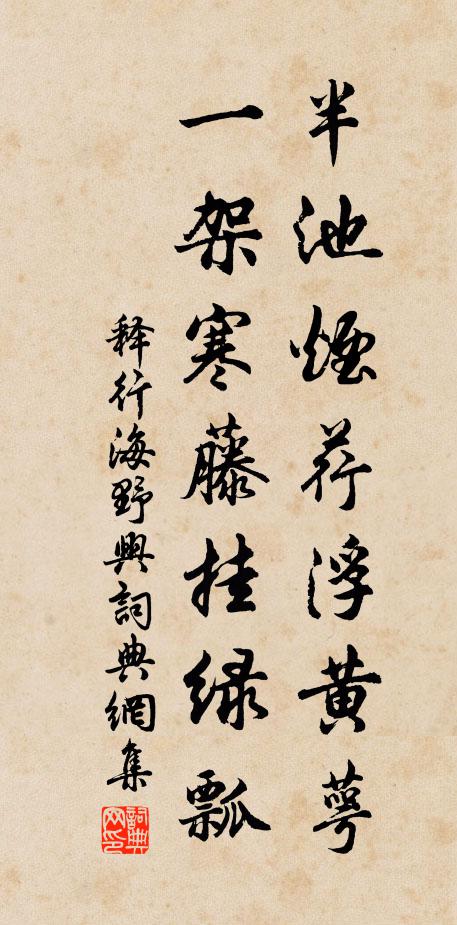 半池煙荇浮黄萼
一架寒藤挂绿瓢
释行海野興詞典網集
詞典网印